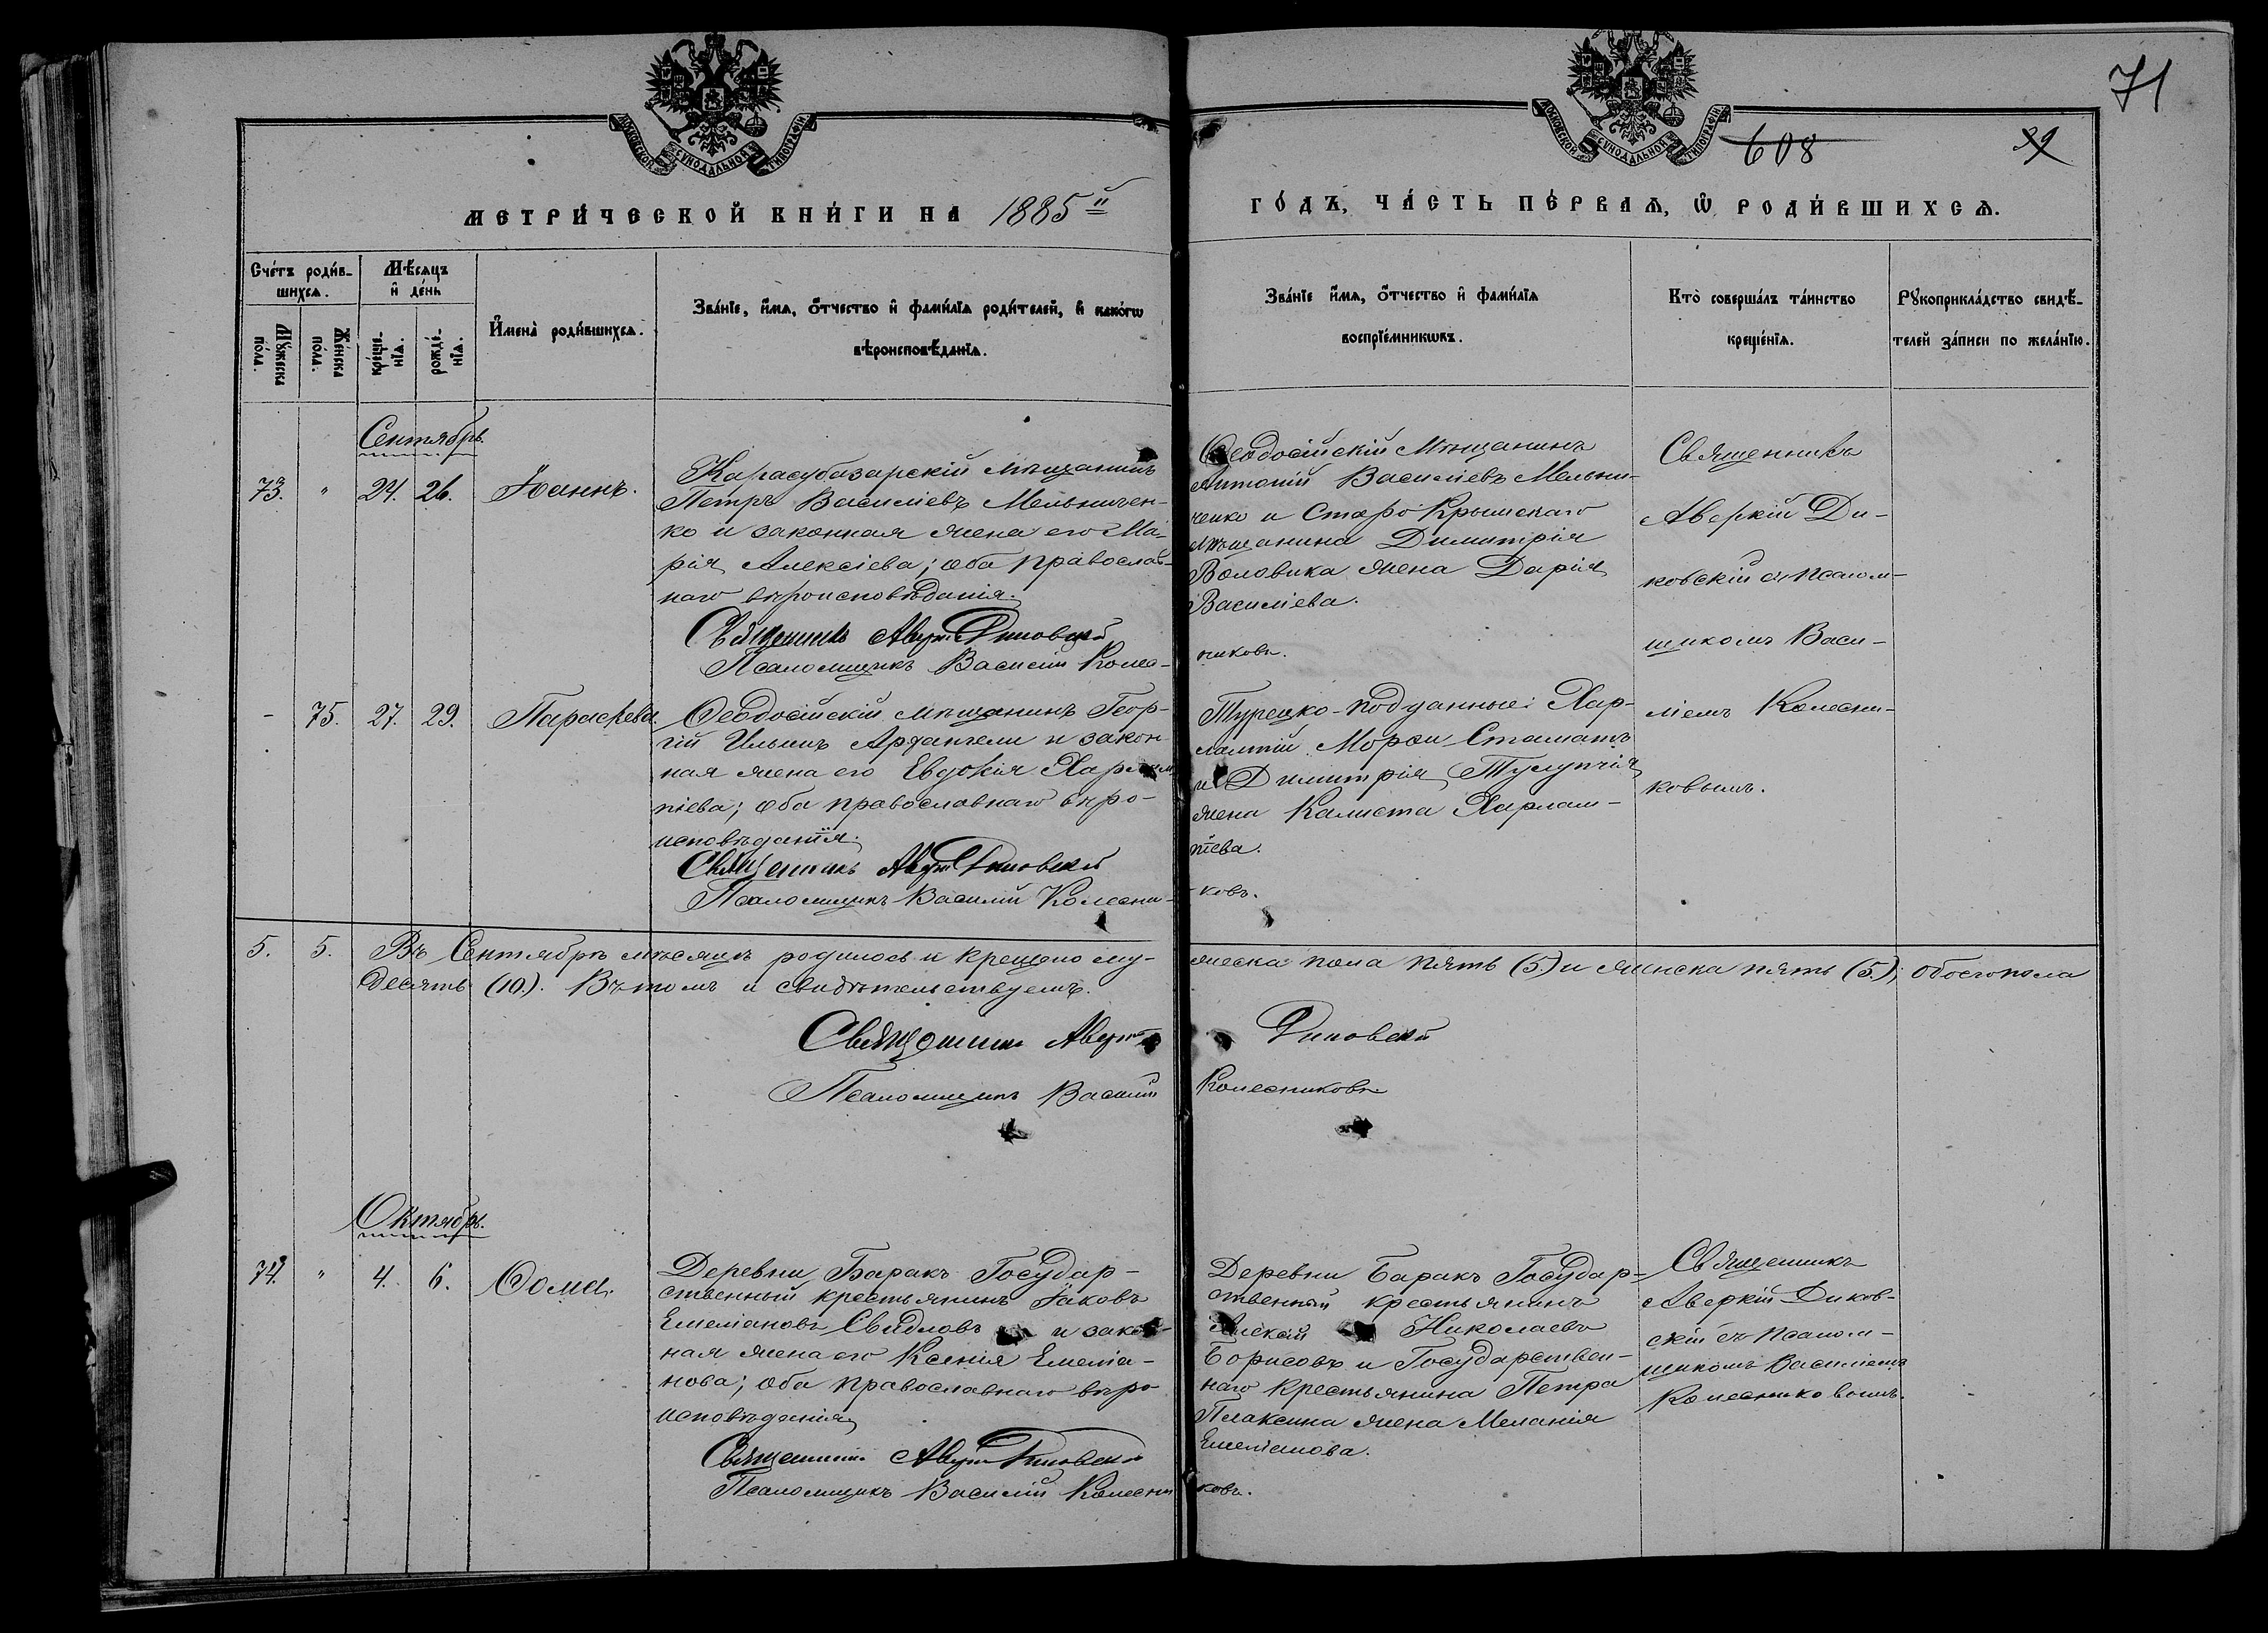 71
МОСКОВСКОЙ СѴНОДАЛЬНОЙ ТИПОГРАФІИ
МОСКОВСКОЙ СѴНОДАЛЬНОЙ ТИПОГРАФІИ
608
МЕТРИ́ЧЕСКОЙ КНИ́ГИ НА 1885й
ГО́ДЪ, ЧА́СТЬ ПЕ́РВАѦ, Ѡ РОДИ́ВШИХСѦ.
Сче́тъ роди́в-
шихсѧ.
Мѣ́сѧцъ
и҆ де́нь
Мꙋ́жеска
пола.
Же́нска
пола.
креще́-
нїѧ.
рожде́-
нїѧ.
И҆мена̀ роди́вшихсѧ.
Зва́нїе, и҆́мѧ, ѻ҆́тчество и҆ фами́лїѧ роди́телей, и҆ како́гѡ
вѣроисповѣ́данїѧ.
Зва́нїе и҆́мѧ, ѻ҆́тчество и҆ фами́лїѧ
воспрїе́мникѡвъ.
Кто̀ соверша́лъ та́инство
креще́нїѧ.
Рꙋкоприкла́дство свидѣ́-
телей за́писи по жела́нїю.
Сентябрь.
73. " 24. 26. Іоаннъ.
Карасубазарскій мѣщанинъ
Петръ Василіевъ Мельничен-
ко и законная жена его Ма-
рія Алексіева; оба православ-
наго вѣроисповѣданія.
Священникъ Аверкій Диковскій
Псаломщикъ Василій Колес-
Ѳеодосійскій Мѣщанинъ
Антоній Василіевъ Мельни-
ченко и Старо-Крымскаго
мѣщанина Димитрія
Воловика жена Дарія
Василіева.
никовъ.
Священникъ
Аверкій Ди-
ковскій съ псалом-
щикомъ Васи-
ліемъ Колесни-
ковымъ.
- 75. 27. 29. Параскева.
Ѳеодосійскій мѣщанинъ Геор-
гій Ильинъ Арфангели и закон-
ная жена его Евдокія Харлам-
піева; оба православнаго вѣро-
исповѣданія.
Священникъ Аверкій Диковскій
Псаломщикъ Василій Колесни-
Турецко-подданные: Хар-
лампій Морфи Стаматъ
и Димитрія Тулупчія
жена Калиста Харлам-
піева.
-ковъ.
5. 5. Въ Сентябрѣ мѣсяцѣ родилось и крещено му-
жеска пола пять (5.) и женска пять (5.); обоего пола
десять (10.). Въ томъ и свидѣтельствуемъ.
Священникъ Аверкій Диковскій
Псаломщикъ Василій Колесниковъ
Октябрь.
74. " 4. 6. Ѳома.
Деревни Баракъ Государ-
ственный крестьянинъ Іаковъ
Емеліановъ Свидловъ и закон-
ная жена его Ксенія Емелія-
нова; оба православнаго вѣро-
исповѣданія
Священникъ Аверкій Диковскій
Псаломщикъ Василій Колесни
Деревни Баракъ Государ-
ственный крестьянинъ
Алексій Николаевъ
Борисовъ и Государствен-
наго крестьянина Петра
Плаксина жена Меланія
Емеліанова.
ковъ.
Священникъ
Аверкій Диков-
скій съ псалом-
щикомъ Василіемъ
Колесниковымъ.